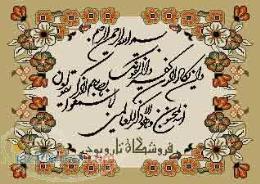 بسم الله الرحمن الرحیم
وان یکاد الذین کفروا لیزلقونک
بابصارهم لما سمعوا الذکر و یقولون
انه لمجنون و ما هو الا ذکر للعالمین
فروشگاه تاروپود